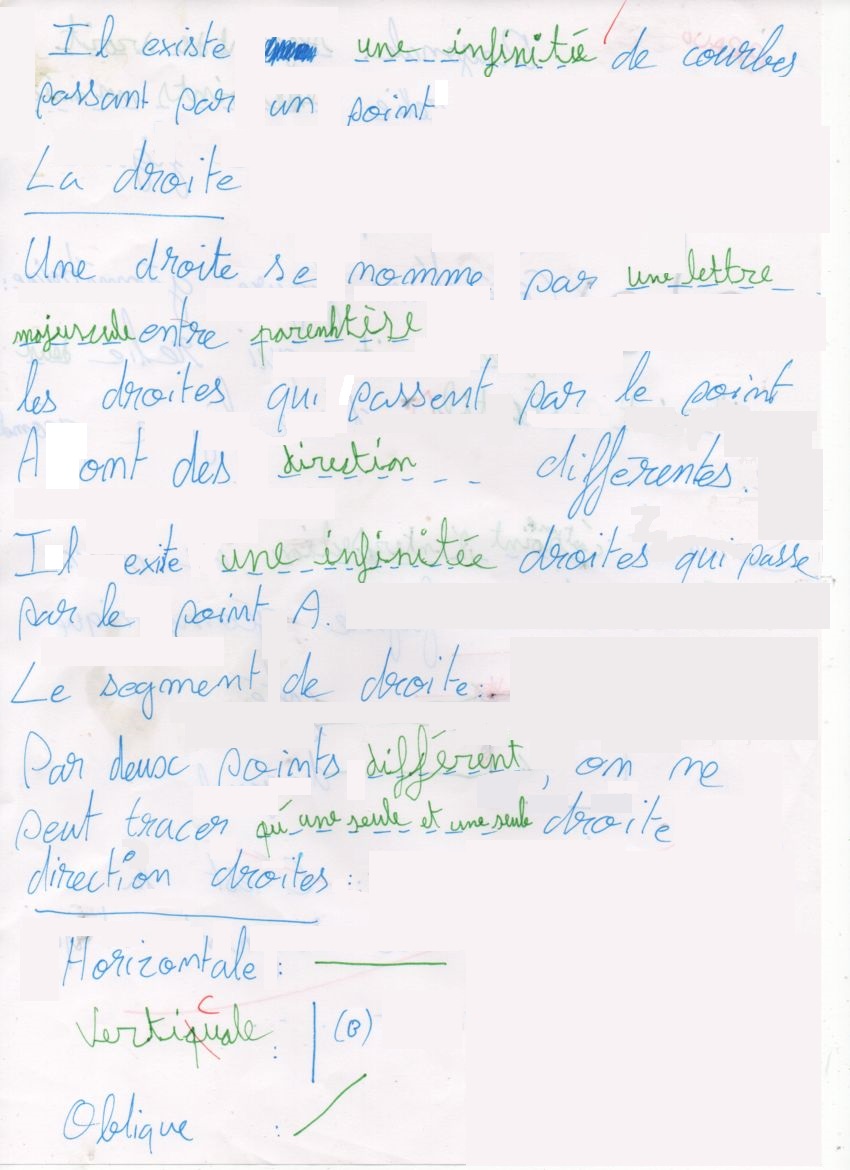 Il existe une infinitée de courbes
passant par un point
La droite
Une droite se nomme par une lettre
majuscule entre parenhtèse
les droites qui passent par le point
A ont des direction différentes.
Il exite une infinitée droites qui passe
par le point A.
Le segment de droite :
Par deux points différent, on ne
peut tracer qu'une seule et une seule droite
direction droites :
Horizontale :
Vertiquale : c
(B)
Oblique :